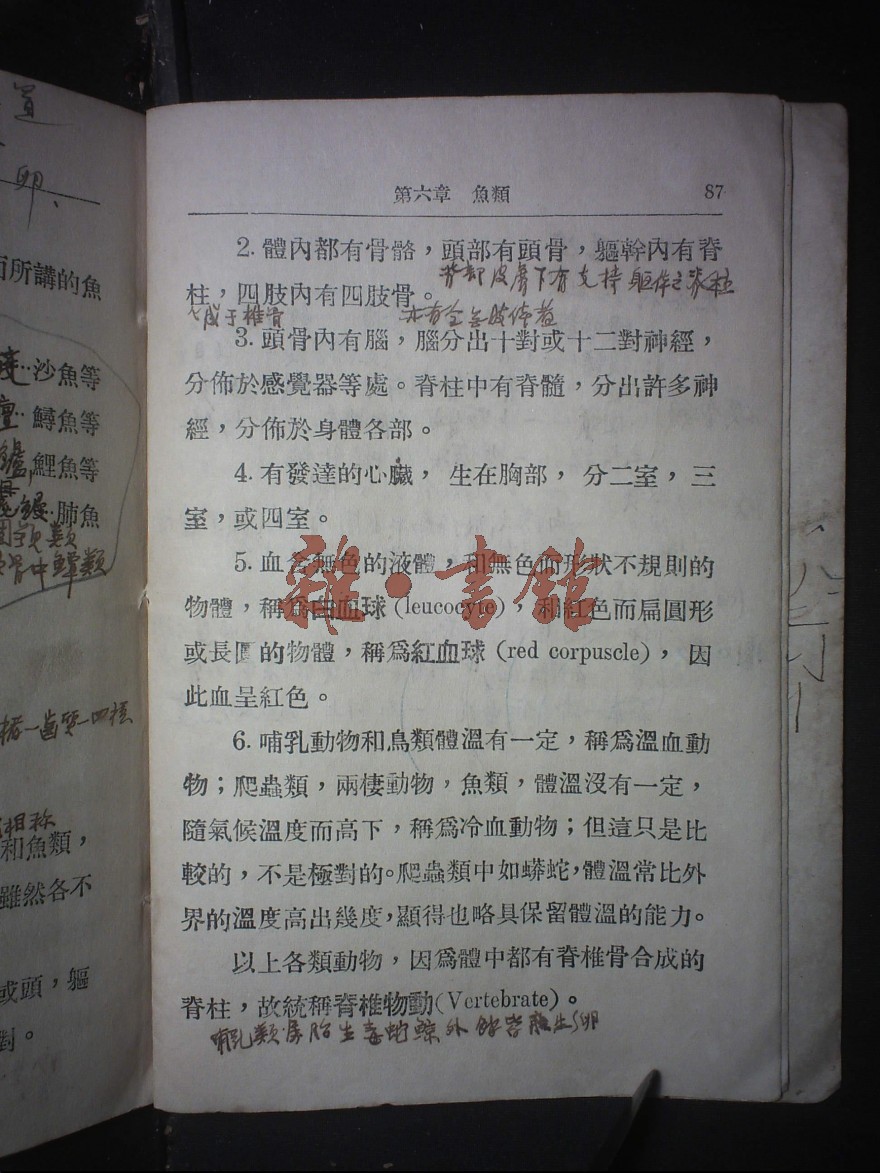 道
卵、
而所講的魚
沙魚等
鱘魚等
鯉魚等
肺魚
相称
和魚類，
雖然各不
或頭，軀
對。
第六章 魚類 87
2. 體內都有骨骼，頭部有頭骨，軀幹內有脊
背部皮膚下有支持軀体之脊柱
柱，四肢內有四肢骨。
成于椎骨
3. 頭骨內有腦，腦分出十對或十二對神經，
分佈於感覺器等處。脊柱中有脊髓，分出許多神
經，分佈於身體各部。
4. 有發達的心臟， 生在胸部， 分二室，三
室，或四室。
5. 血含無色的液體，和無色而形狀不規則的
物體，稱爲白血球 (leucocyte)，和紅色而扁圓形
或長圓的物體，稱爲紅血球 (red corpuscle)， 因
此血呈紅色。
6. 哺乳動物和鳥類體溫有一定，稱爲溫血動
物；爬蟲類，兩棲動物，魚類，體溫沒有一定，
隨氣候溫度而高下，稱爲冷血動物；但這只是比
較的，不是極對的。爬蟲類中如蟒蛇，體溫常比外
界的溫度高出幾度，顯得也略具保留體溫的能力。
以上各類動物，因爲體中都有脊椎骨合成的
脊柱，故統稱脊椎物動(Vertebrate)。
哺乳類 胎生毒蛇 外 卵
雜·書館